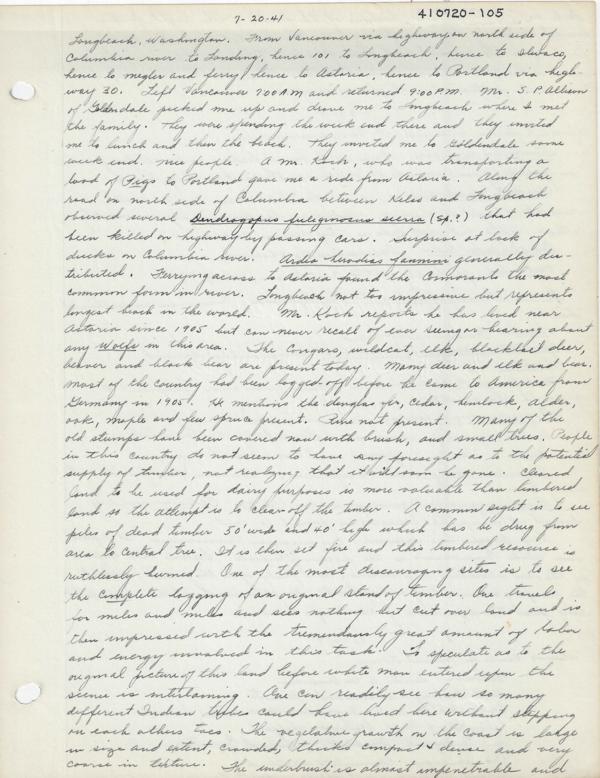 7-20-41
410720-105
Longbeach, Washington. From Vancouver via highway on north side of
Columbia river to Landing, hence 101 to Longbeach, hence to Ilwaco,
hence to megler and ferry, hence to Astoria, hence to Portland via high-
way 30. Left Vancouver 700 AM and returned 9:00 P.M. Mr. S. P. Allison
of Goldendale picked me up and drove me to Longbeach where I met
the family. They were spending the week end there and they invited
me to lunch and then the beach. They invited me to Goldendale some
week end. nice people. A Mr. Koch, who was transporting a
load of Pigs to Portland gave me a ride from Astoria. Along the
road on north side of Columbia between Kelso and Longbeach
observed several Dendragapus fuliginosus sierra (sp.?) that had
been killed on highway by passing cars. Surprise at lack of
ducks on Columbia river. Ardea herodias fannini generally dis-
tributed. Ferrying across to Astoria found the Cormorants the most
common form in river. Longbeach not too impressive but represents
longest beach in the world. Mr. Koch reports he has lived near
Astoria since 1905 but can never recall of ever seeing or hearing about
any Wolfs in this area. The Cougars, wildcat, elk, blacktail deer,
beaver and black bear are present today. Many deer and elk and bear.
most of the country had been logged off before he came to America from
Germany in 1905. He mentions the douglas fir, Cedar, hemlock, Alder,
oak, maple and few spruce present. Pine not present. Many of the
old stumps have been covered now with brush, and small trees. People
in this country do not seem to have any foresight as to the potential
supply of timber, not realizing that it will soon be gone. Cleared
land to be used for dairy purposes is more valuable than timbered
land so the attempt is to clear off the timber. A common sight is to see
piles of dead timber 50' wide and 40' high which has be drug from
area to central tree. It is then set fire and this timbered resource is
ruthlessly burned. One of the most discouraging sites is to see
the complete logging of an original stand of timber. One travels
for miles and miles and sees nothing but cut over land and is
then impressed with the tremendously great amount of labor
and energy involved in this task. To speculate as to the
original picture of this land before white man entered upon the
scene is entertaining. One can readily see how so many
different Indian tribes could have lived here without stepping
on each others toes. The vegetative growth on the coast is large
in size and extent, crowded, thicked compact & dense and very
coarse in texture. The underbrush is almost impenetrable and